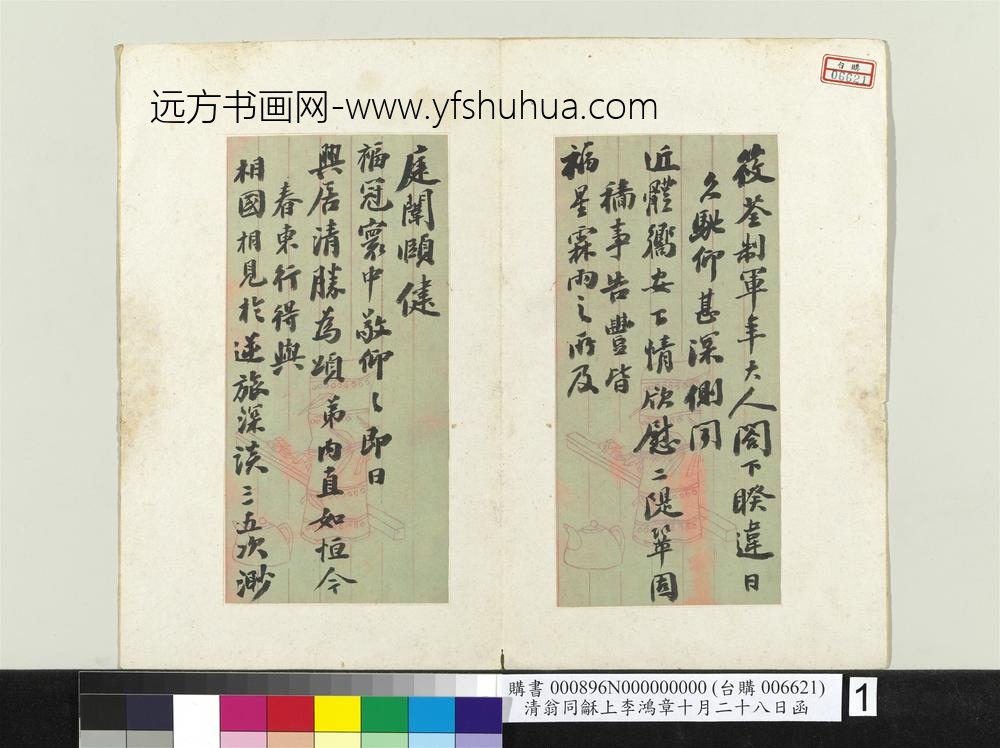 远方书画网-www.yfshuhua.com
台購
06621
筱荃制軍年大人閣下睽違日
久馳仰甚深側聞
近體衛安下情欣慰二隄鞏固
穡事告豐皆
福星霖雨之所及
庭闈頤健
福冠寰中敬仰々即日
興居清勝為頌弟內直如恒今
春東行得與
相國相見於逆旅深談三五次渺
購書 000896N000000000 (台購 006621)
清翁同龢上李鴻章十月二十八日函
1